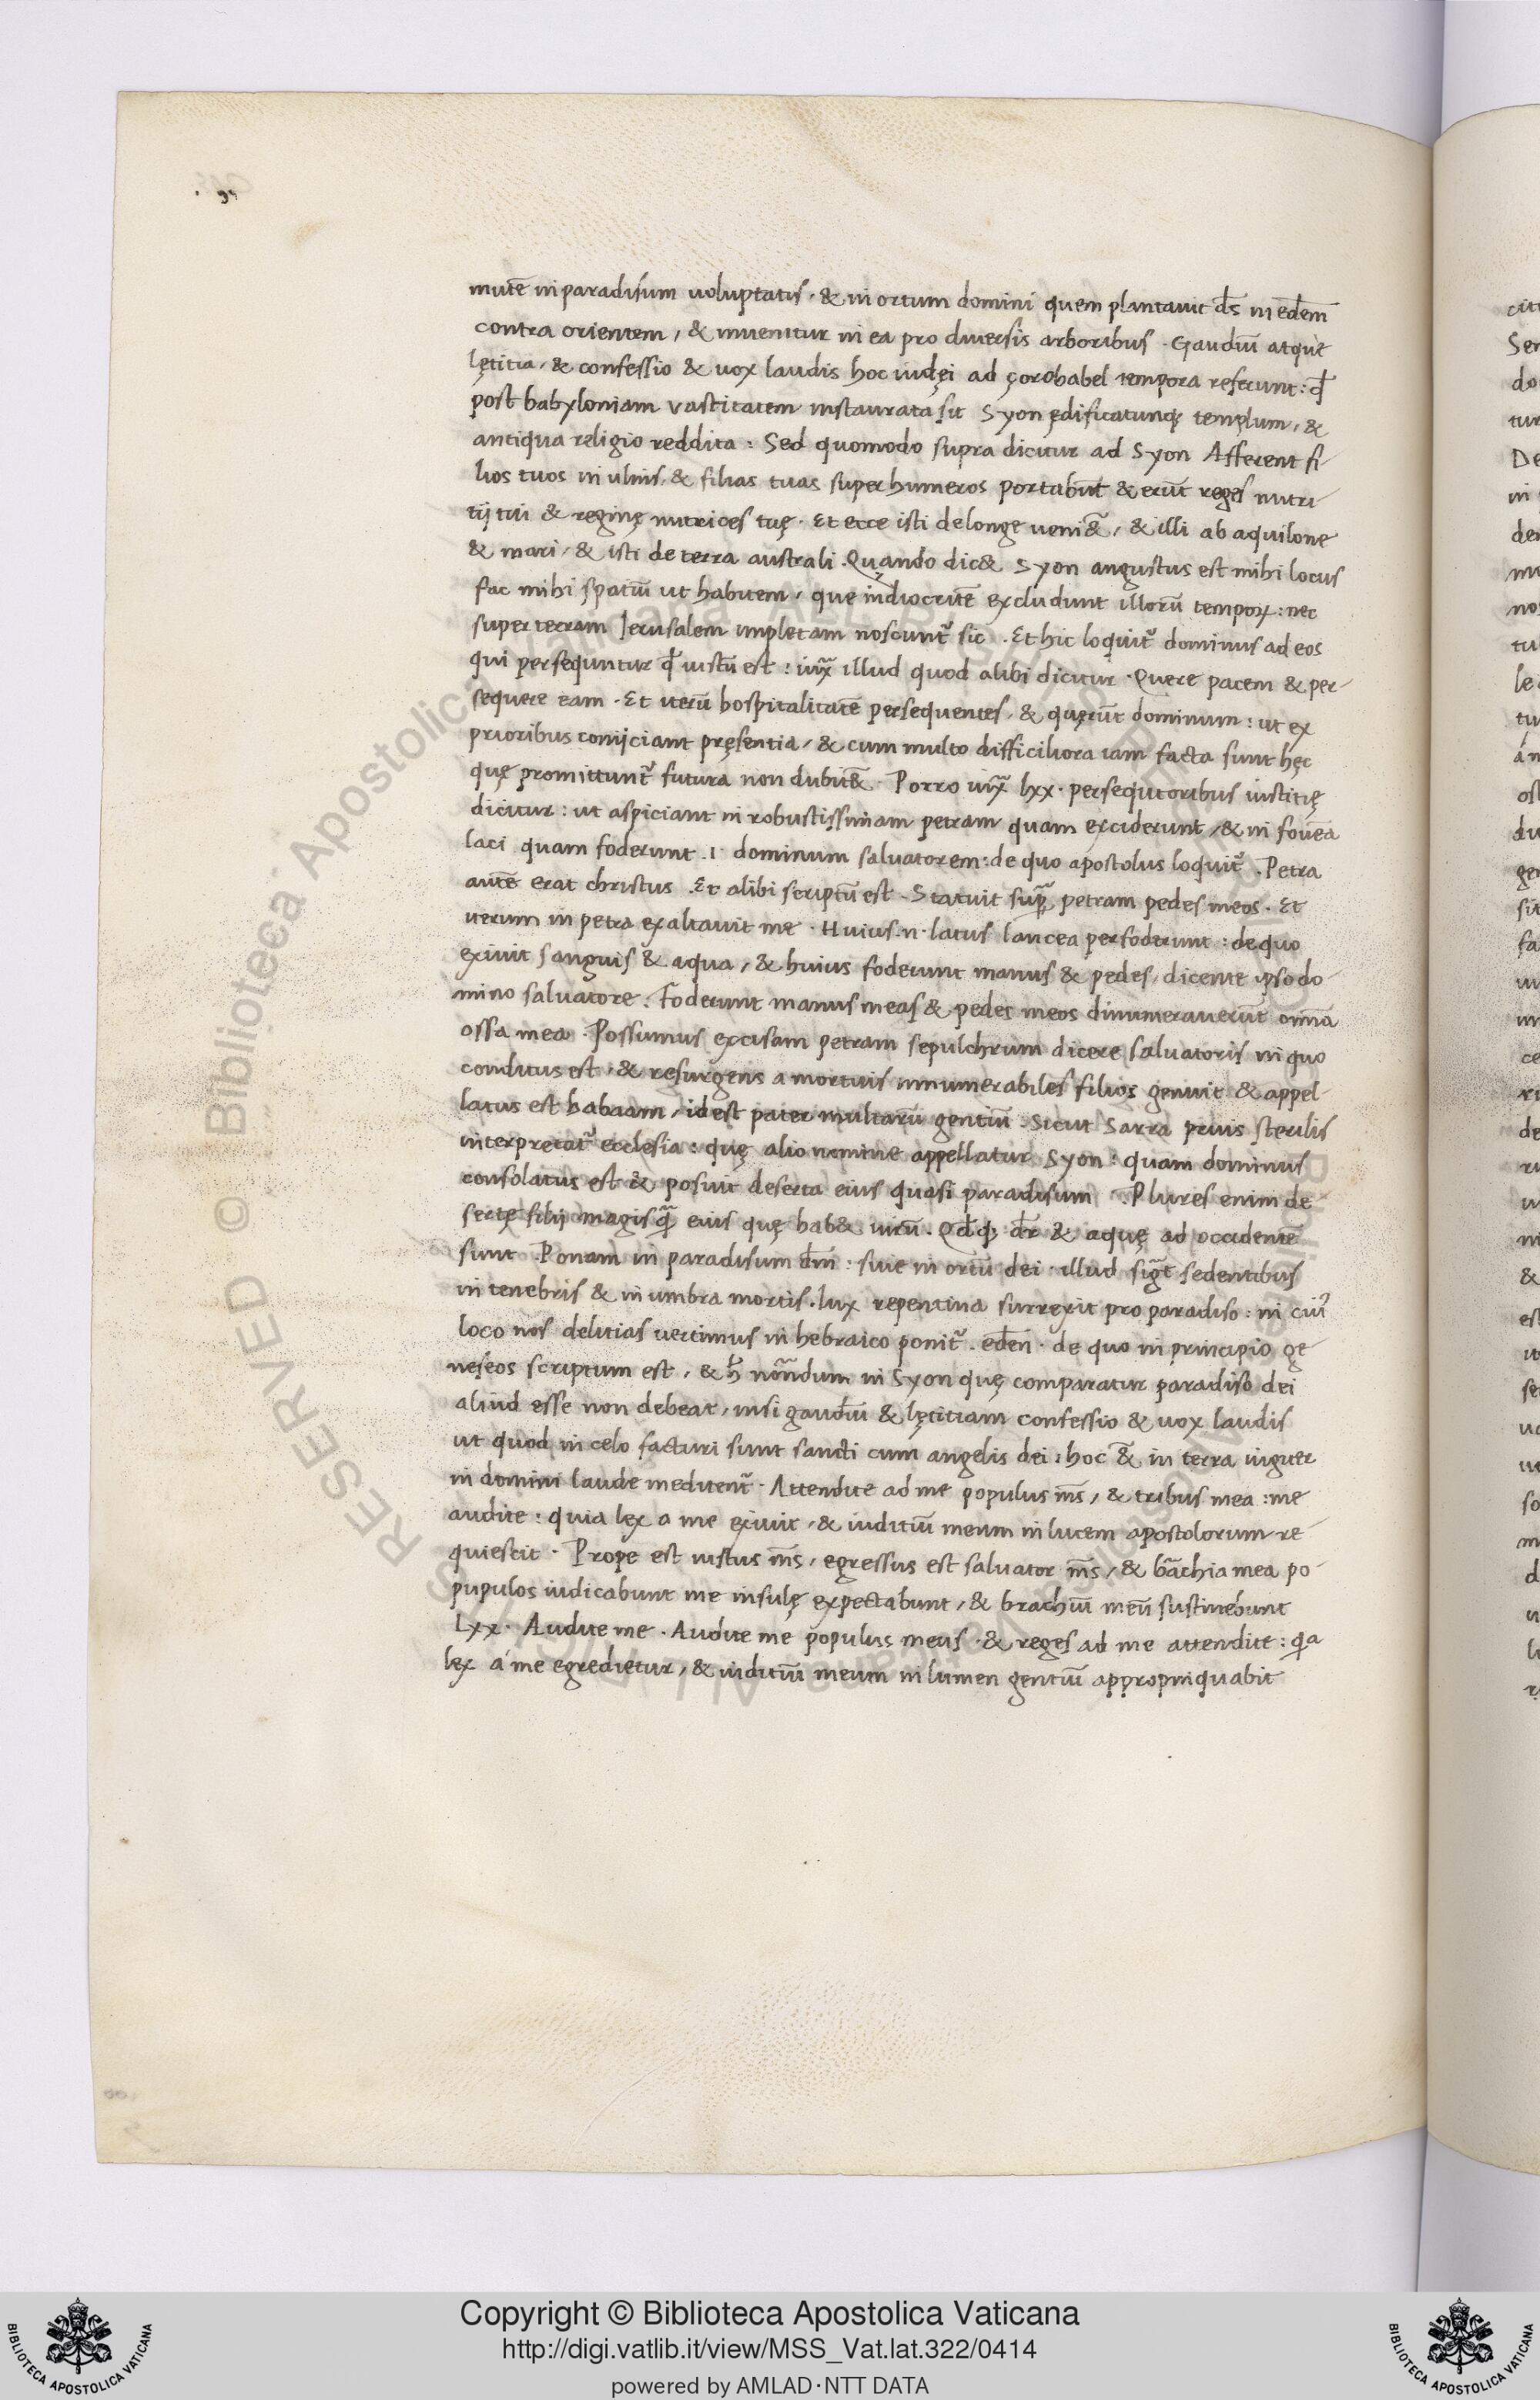 mutē in paradisum voluptatis · & in ortum domini quem plantauit d̄s in edēm
contra orientem, & inuenitur in ea pro diuersis arboribus · Gaudiū atque
lętitia, & confessio & uox laudis hoc iudęi ad çorobabel tempora referunt : qđ
post babyloniam vastitatem instaurata sit Syon ędificatumq; templum, &
antiqua religio reddita : Sed quomodo supra dicitur ad Syon Afferent fi-
lios tuos in ulnis, & filias tuas super humeros portabūt & erūt reges nutri-
tij tui & reginę nutrices tuę · Et ecce isti de longe ueniēt, & illi ab aquilone
& mari, & isti de terra australi · Quando dic& Syon angustus est mihi locus
fac mihi spatiū ut habitem, que indiocritē excludunt illorū tempoꝝ : nec
super terram Jerusalem impletam noscunt᷑ sic · Et hic loquit᷑ dominus ad eos
qui persequntur qđ iustū est : iux̄ illud quod alibi dicitur · Quere pacem & per-
sequere eam · Et iterū hospitalitatē persequentes, & quęrūt dominum : ut ex
prioribus conijciant pręsentia, & cum multo difficiliora iam facta sunt hęc
quę promittunt᷑ futura non dubitē& · Porro iux̄ lxx · persequtoribus iustitię
dicitur : ut aspiciant in robustissimam petram quam exciderunt, & in fouēa
laci quam foderunt .i. dominum saluatorem : de quo apostolus loquit᷑ · Petra
autē erat christus · Et alibi scriptū est · Statuit sup̄ petram pedes meos · Et
iterum in petra exaltauit me · Huius .n. latus lancea perfoderunt : de quo
exiuit sanguis & aqua, & huius foderunt manus & pedes, dicente ipso do-
mino saluatore : Foderunt manus meas & pedes meos dinumerauerūt omīa
ossa mea · Possumus excisam petram sepulchrum dicere saluatoris in quo
conditus est, & resurgens a mortuis innumerabiles filios genuit & appel-
latus est babaam, id est pater multarū gentiū · Sicut Sarra prius sterilis
interpretat᷑ ecclesia : quę alio nomine appellatur Syon : quam dominus
consolatus est & posuit deserta eius quasi paradisum · Plures enim de-
sertę filij magis q̄ eius quę hab& uirū · Qđq; dr̄ & aquę ad occidentē
sunt · Ponam in paradisum dn̄i : siue in ortū dei · illud sigt̄ sedentibus
in tenebris & in umbra mortis · lux repentina surrexit pro paradiso : in cui᷒
loco nos delitias uertimus in hebraico ponit᷑ · edēn · de quo in principio ge-
neseos scriptum est, & h̄ nōndum in Syon quę comparatur paradiso dei
aliud esse non debeat, nisi gaudiū & lętitiam confessio & uox laudis
ut quod in celo facturi sunt sancti cum angelis dei : hoc & in terra iugiter
in domini laude meditent᷑ · Attendite ad me populus ms̄, & tribus mea : me
audite : quia lex a me exiuit, & iuditiū meum in lucem apostolorum re-
quiescit · Prope est iustus ms̄, egressus est saluator ms̄, & bāchia mea po-
pupulos iudicabunt me insulę expectabunt, & brachiū meū sustinebunt
Lxx · Audite me · Audite me populus meus · & reges ad me attendite : qa
lex á me egredietur, & iuditiū meum in lumen gentiū appropinquabit
Copyright © Biblioteca Apostolica Vaticana
http://digi.vatlib.it/view/MSS_Vat.lat.322/0414
powered by AMLAD·NTT DATA